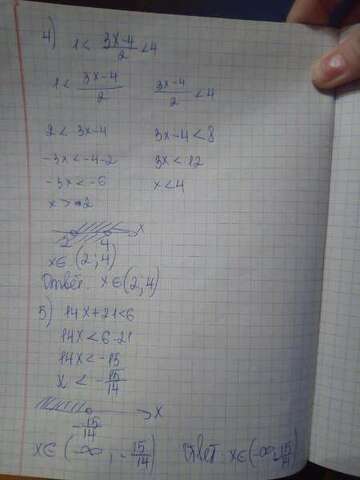 4) 1 < (3x-4)/2 < 4
1 < (3x-4)/2    (3x-4)/2 < 4
2 < 3x-4    3x-4 < 8
-3x < -4-2    3x < 12
-3x < -6    x < 4
x > 2
2    4    x
x∈(2; 4)
Ответ: x∈(2; 4)
5) 14x+21<6
14x < 6-21
14x < -15
x < -15/14
-15/14    x
x∈(-∞; -15/14)    Ответ: x∈(-∞; -15/14)